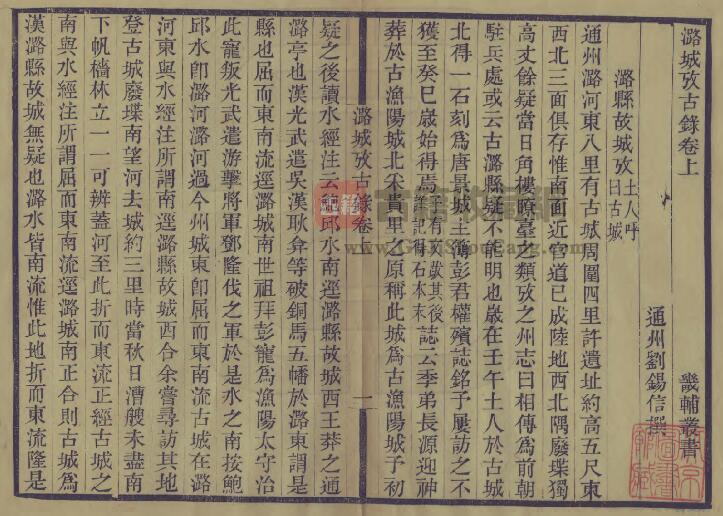 潞城攷古錄卷上 畿輔叢書
通州劉錫信撰
潞縣故城攷土人呼曰古城
通州潞河東八里有古城周圍四里許遺址約高五尺東
西北三面俱存惟南面近官道已成陸地西北隅廢堞獨
高丈餘疑當日角樓瞭臺之類攷之州志曰相傳爲前朝
駐兵處或云古潞縣疑不能明也歲在壬午土人於古城
北得一石刻爲唐景城主簿彭君權殯誌銘予屢訪之不
獲至癸巳歲始得焉誌云季弟長源迎神
葬於古漁陽城北采貴里之原稱此城爲古漁陽城予初
潞城攷古錄卷上 一
疑之後讀水經注云鮑邱水南逕潞縣故城西王莽之通
潞亭也漢光武遣吳漢耿弇等破銅馬五幡於潞東謂是
縣也屈而東南流逕潞城南世祖拜彭寵爲漁陽太守治
此寵叛光武遣游擊將軍鄧隆伐之軍於是水之南按鮑
邱水卽潞河潞河過今州城東卽屈而東南流古城在潞
河東與水經注所謂南逕潞縣故城西合余嘗尋訪其地
登古城廢堞南望河去城約三里時當秋日漕艘未盡南
下帆檣林立一一可辨蓋河至此折而東流正經古城之
南與水經注所謂屈而東南流逕潞城南正合則古城爲
漢潞縣故城無疑也潞水皆南流惟此地折而東流隆是